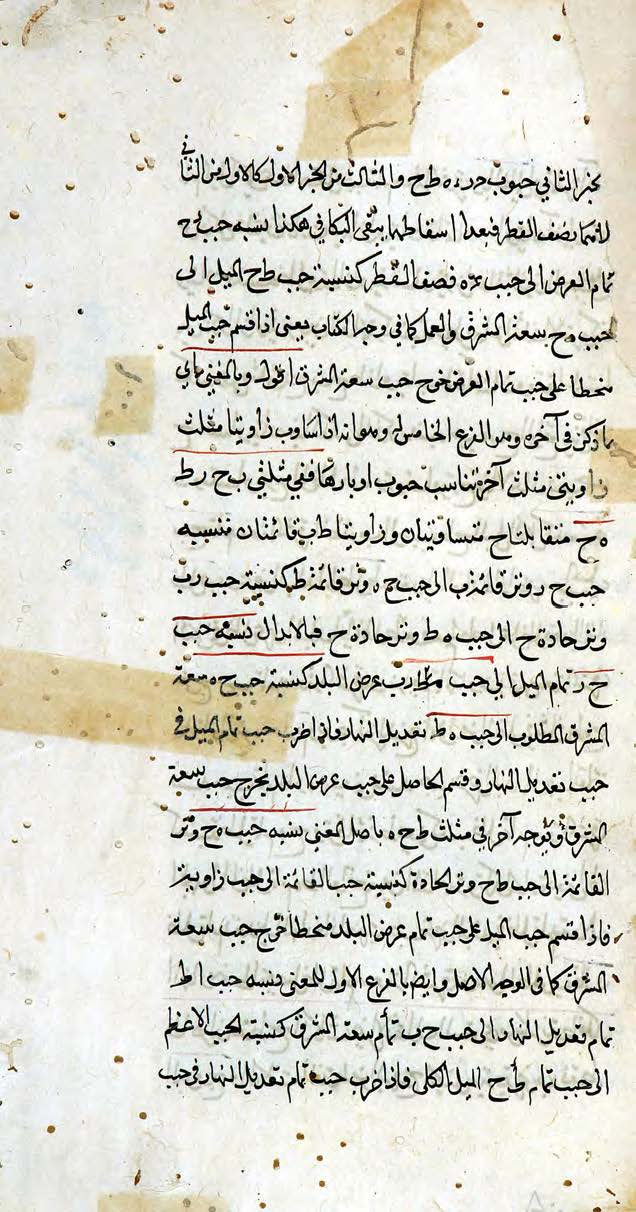 لجزء الثاني جيوب ه ط ح والثالث من الجزء الاول كالاول من الثاني
لانهما نصف القطر فبعد اسقاطهما يبقى الباقي هكذا نسبة جيب ح
تمام العرض الى جيب ه نصف القطر كنسبة جيب ط ح الميل الى
جيب ه ح سعة المشرق والعمل كما في وجه الكتاب يعنى اذا قسم جيب الميل
منحطا على جيب تمام العرض خرج جيب سعة المشرق اقول وبالمغني
ما ذكر في آخره وهو الفرع الخامس له وهو انه اذا تساوت زاويتا مثلث
زاويتي مثلث آخر تناسب جيوب اوتارها ففي مثلثي ب ح ر ط
ه ح متقابلتا ح متساويتان وزاويتا ط ب قائمتان فنسبة
جيب ح ر وتر قائمة ب الى جيب ح ه وتر قائمة ط كنسبة جيب ر ب
وتر حادة ح الى جيب ه ط وتر حادة ح فبالابدال نسبة جيب
ح ر تمام الميل الى جيب ر ب عرض البلد كنسبة جيب ح ه سعة
المشرق المطلوب الى جيب ه ط تعديل النهار فاذا ضرب جيب تمام الميل في
جيب تعديل النهار وقسم الحاصل على جيب عرض البلد يخرج جيب سعة
المشرق وبوجه آخر في مثلث ط ح ه باصل المغني نسبة جيب ه ح وتر
القائمة الى جيب ط ح وتر الحادة كنسبة جيب القائمة الى جيب زاوية
فاذا قسم جيب الميل على جيب تمام عرض البلد منحطا خرج جيب سعة
المشرق كما في الوجه الاصل وايضا بالفرع الاول للمغنى نسبة جيب ا ط
تمام تعديل النهار الى جيب ح ب تمام سعة المشرق كنسبة الجيب الاعظم
الى جيب تمام ط ح الميل الكلي فاذا ضرب جيب تمام تعديل النهار في جيب